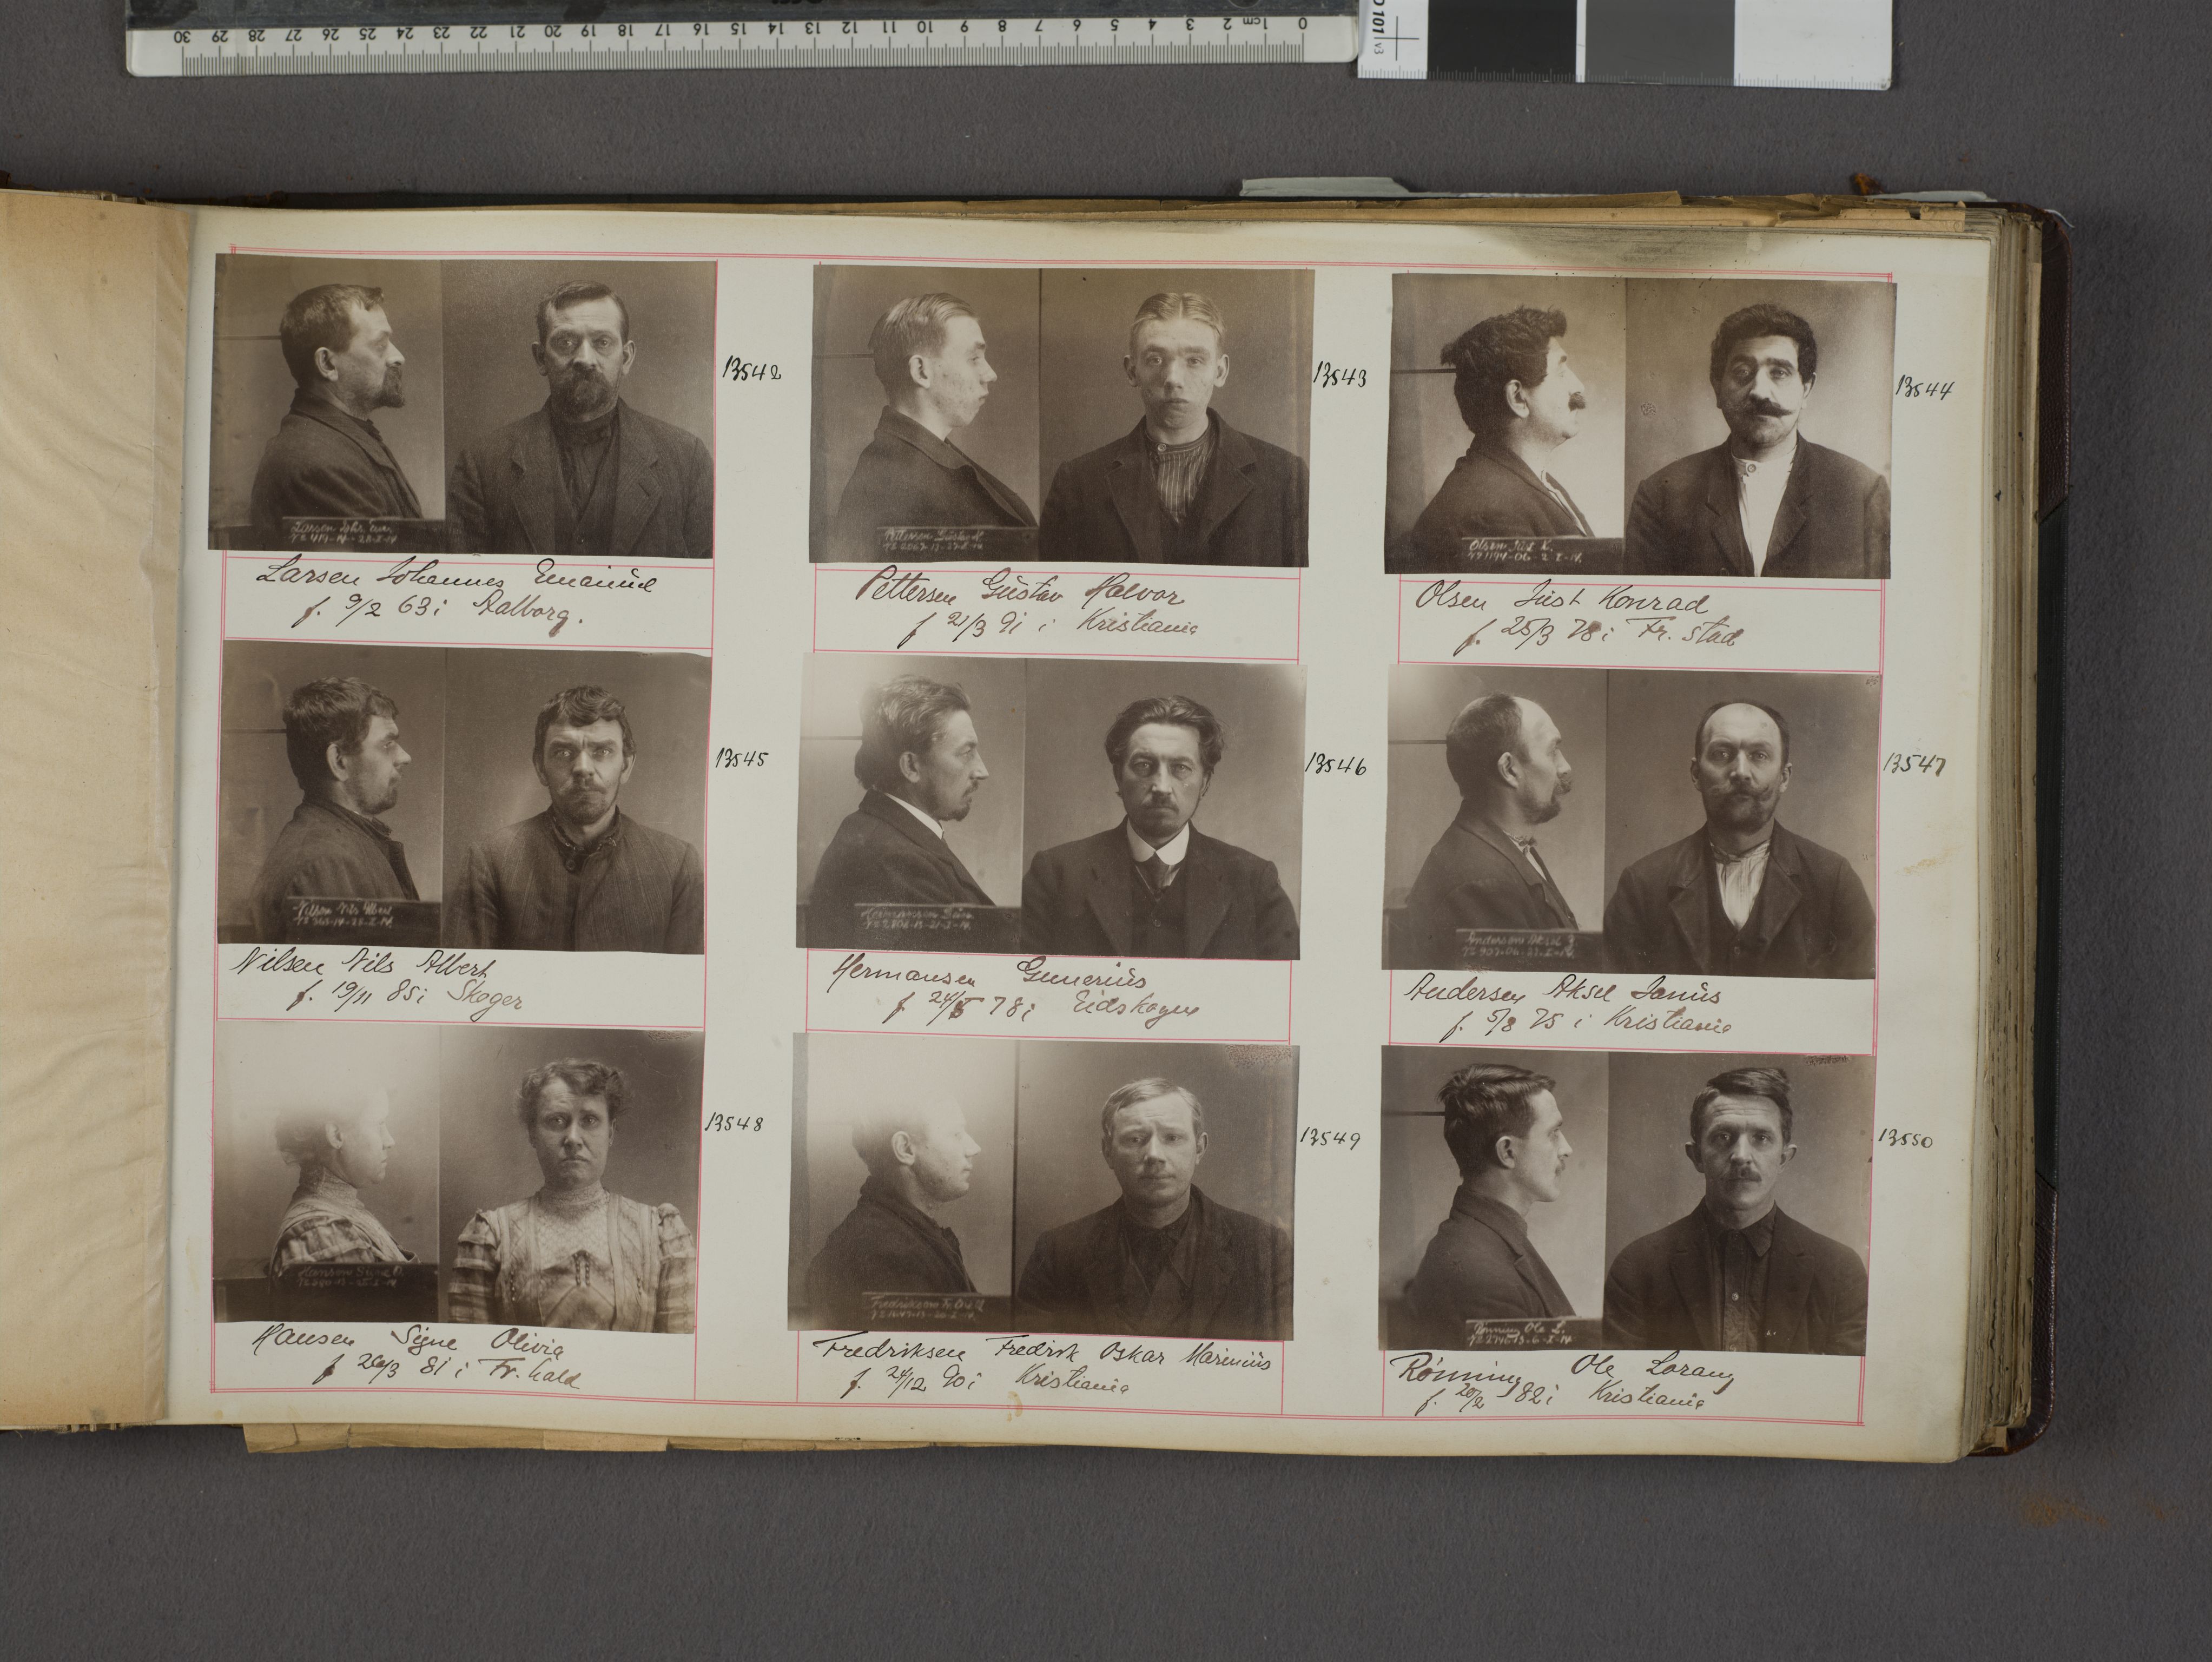 30 29 28 27 26 25 24 23 22 21 20 19 18 17 16 15 14 13 12 11 10 9 8 7 6 5 4 3 2 1cm 0
101 v3
13542
13543
13544
Larsen Johannes Emanuel
f. 9/2 63 i Aalborg.
Pettersen Gustav Halvor
f 21/3 91 i Kristiania
Olsen Just Konrad
f. 25/3 78 i Fr. stad
13545
13546
13547
Nilsen Nils Albert
f. 19/11 85 i Skoger
Hermansen Gunerius
f 24/5 78 i Eidskogen
Andersen Aksel Janus
f. 5/8 75 i Kristiania
13548
13549
13550
Hansen Signe Olivia
f 26/3 81 i Fr. hald
Fredriksen Fredrik Oskar Marinius
f. 24/12 90 i Kristiania
Rönning Ole Lorang
f. 20/2 82 i Kristiania